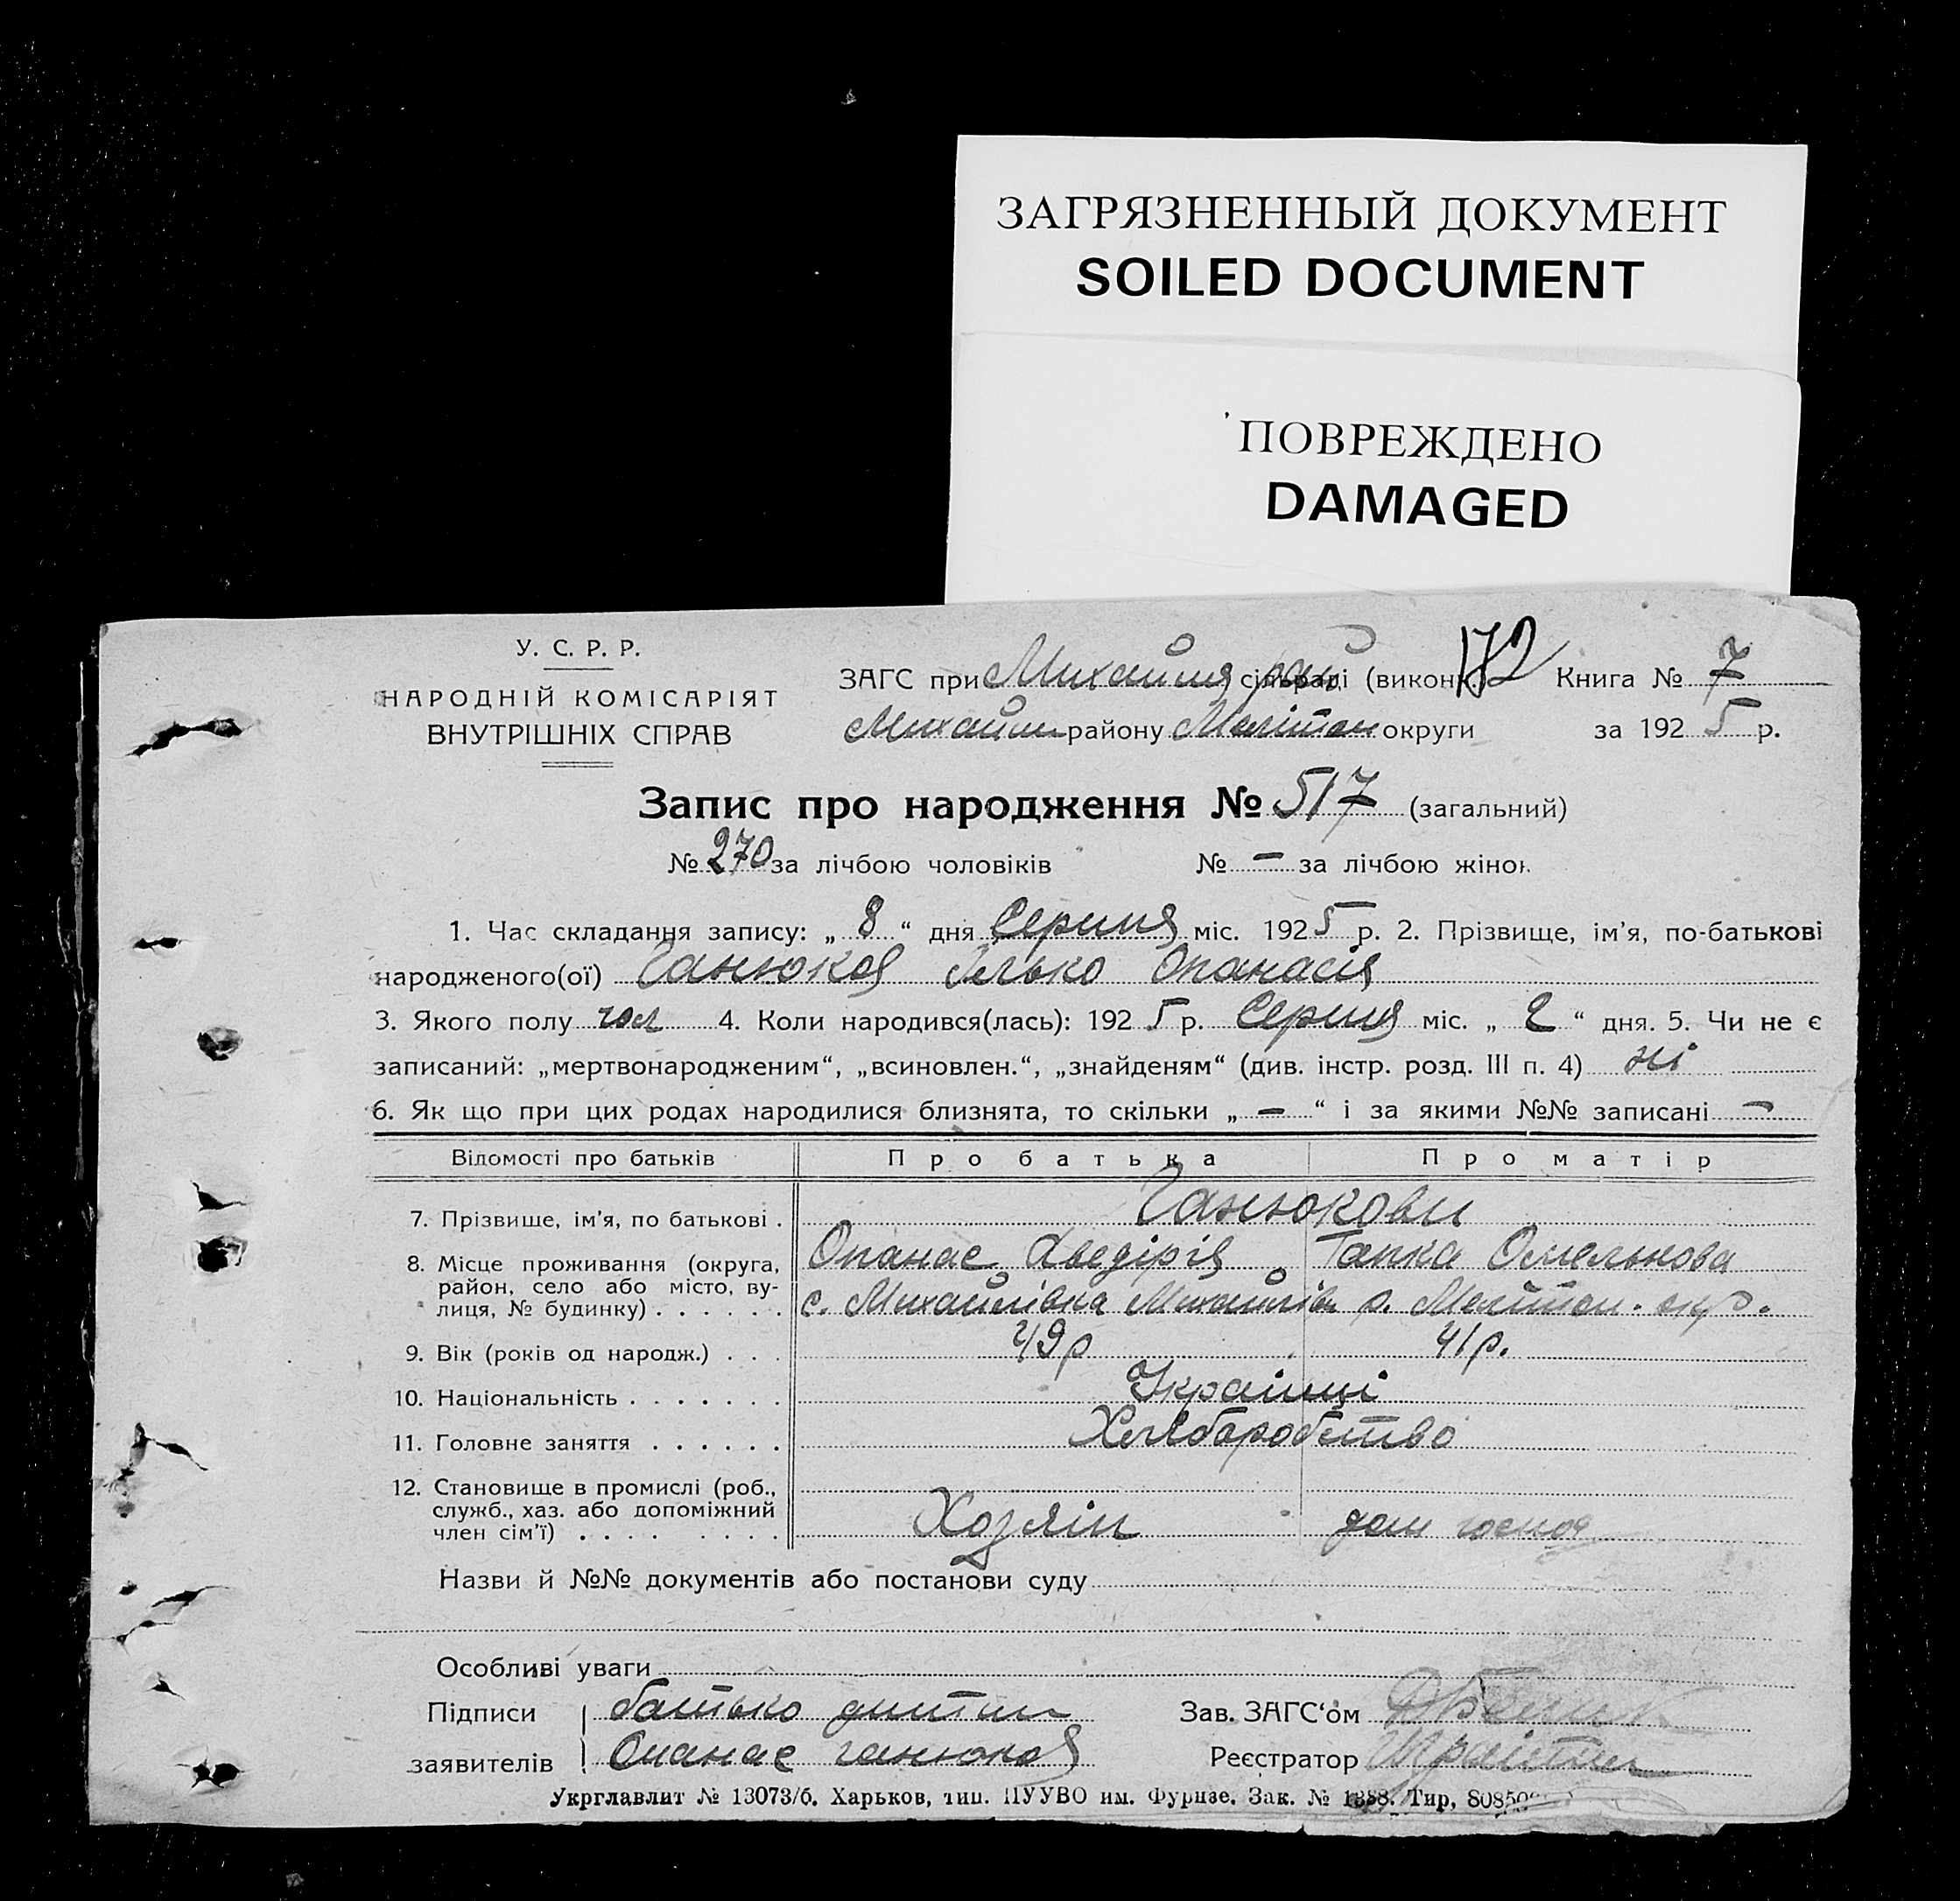 ЗАГРЯЗНЕННЫЙ ДОКУМЕНТ
SOILED DOCUMENT
ПОВРЕЖДЕНО
DAMAGED
У. С. Р. Р.
НАРОДНІЙ КОМІСАРІЯТ
ВНУТРІШНІХ СПРАВ
ЗАГС при Михайля рай сільраді (викон 172 Книга № 7
Михайл району Меліт округи за 1925 р.
Запис про народження № 517 (загальний)
№ 270 за лічбою чоловіків № — за лічбою жінок
1. Час складання запису: „ 8 “ дня Серпня міс. 1925 р. 2. Прізвище, ім’я, по-батькові
народженого(ої) Ганюков Ілько Опанасів
3. Якого полу чол 4. Коли народився(лась): 1925 р. Серпня міс. „ 2 “ дня. 5. Чи не є
записаний: „мертвонародженим“, „всиновлен.“, „знайденям“ (див. інстр. розд. III п. 4) ні
6. Як що при цих родах народилися близнята, то скільки „ — “ і за якими №№ записані —
Відомості про батьків Про батька Про матір
7. Прізвище, ім’я, по батькові . Ганюкови
Опанас Хведірів Гапка Омелькова
8. Місце проживання (округа,
район, село або місто, ву-
лиця, № будинку) . . . . . . с. Михайлівка Михайлів р. Мелітоп. окр.
9. Вік (років од народж.) . . . 49р 41р.
10. Національність . . . . . . . Українці
11. Головне заняття . . . . . . Хліборобство
12. Становище в промислі (роб.,
служб., хаз. або допоміжний
член сім’ї) . . . . . . . . Хозяін дом госпо
Назви й №№ документів або постанови суду
Особливі уваги
Підписи батько дитини Зав. ЗАГС‘ом
заявителів Опанас Ганюков Реєстратор
Укрглавлит № 13073/б. Харьков, тип. ПУУВО им. Фрунзе. Зак. № 1388. Тир. 80850